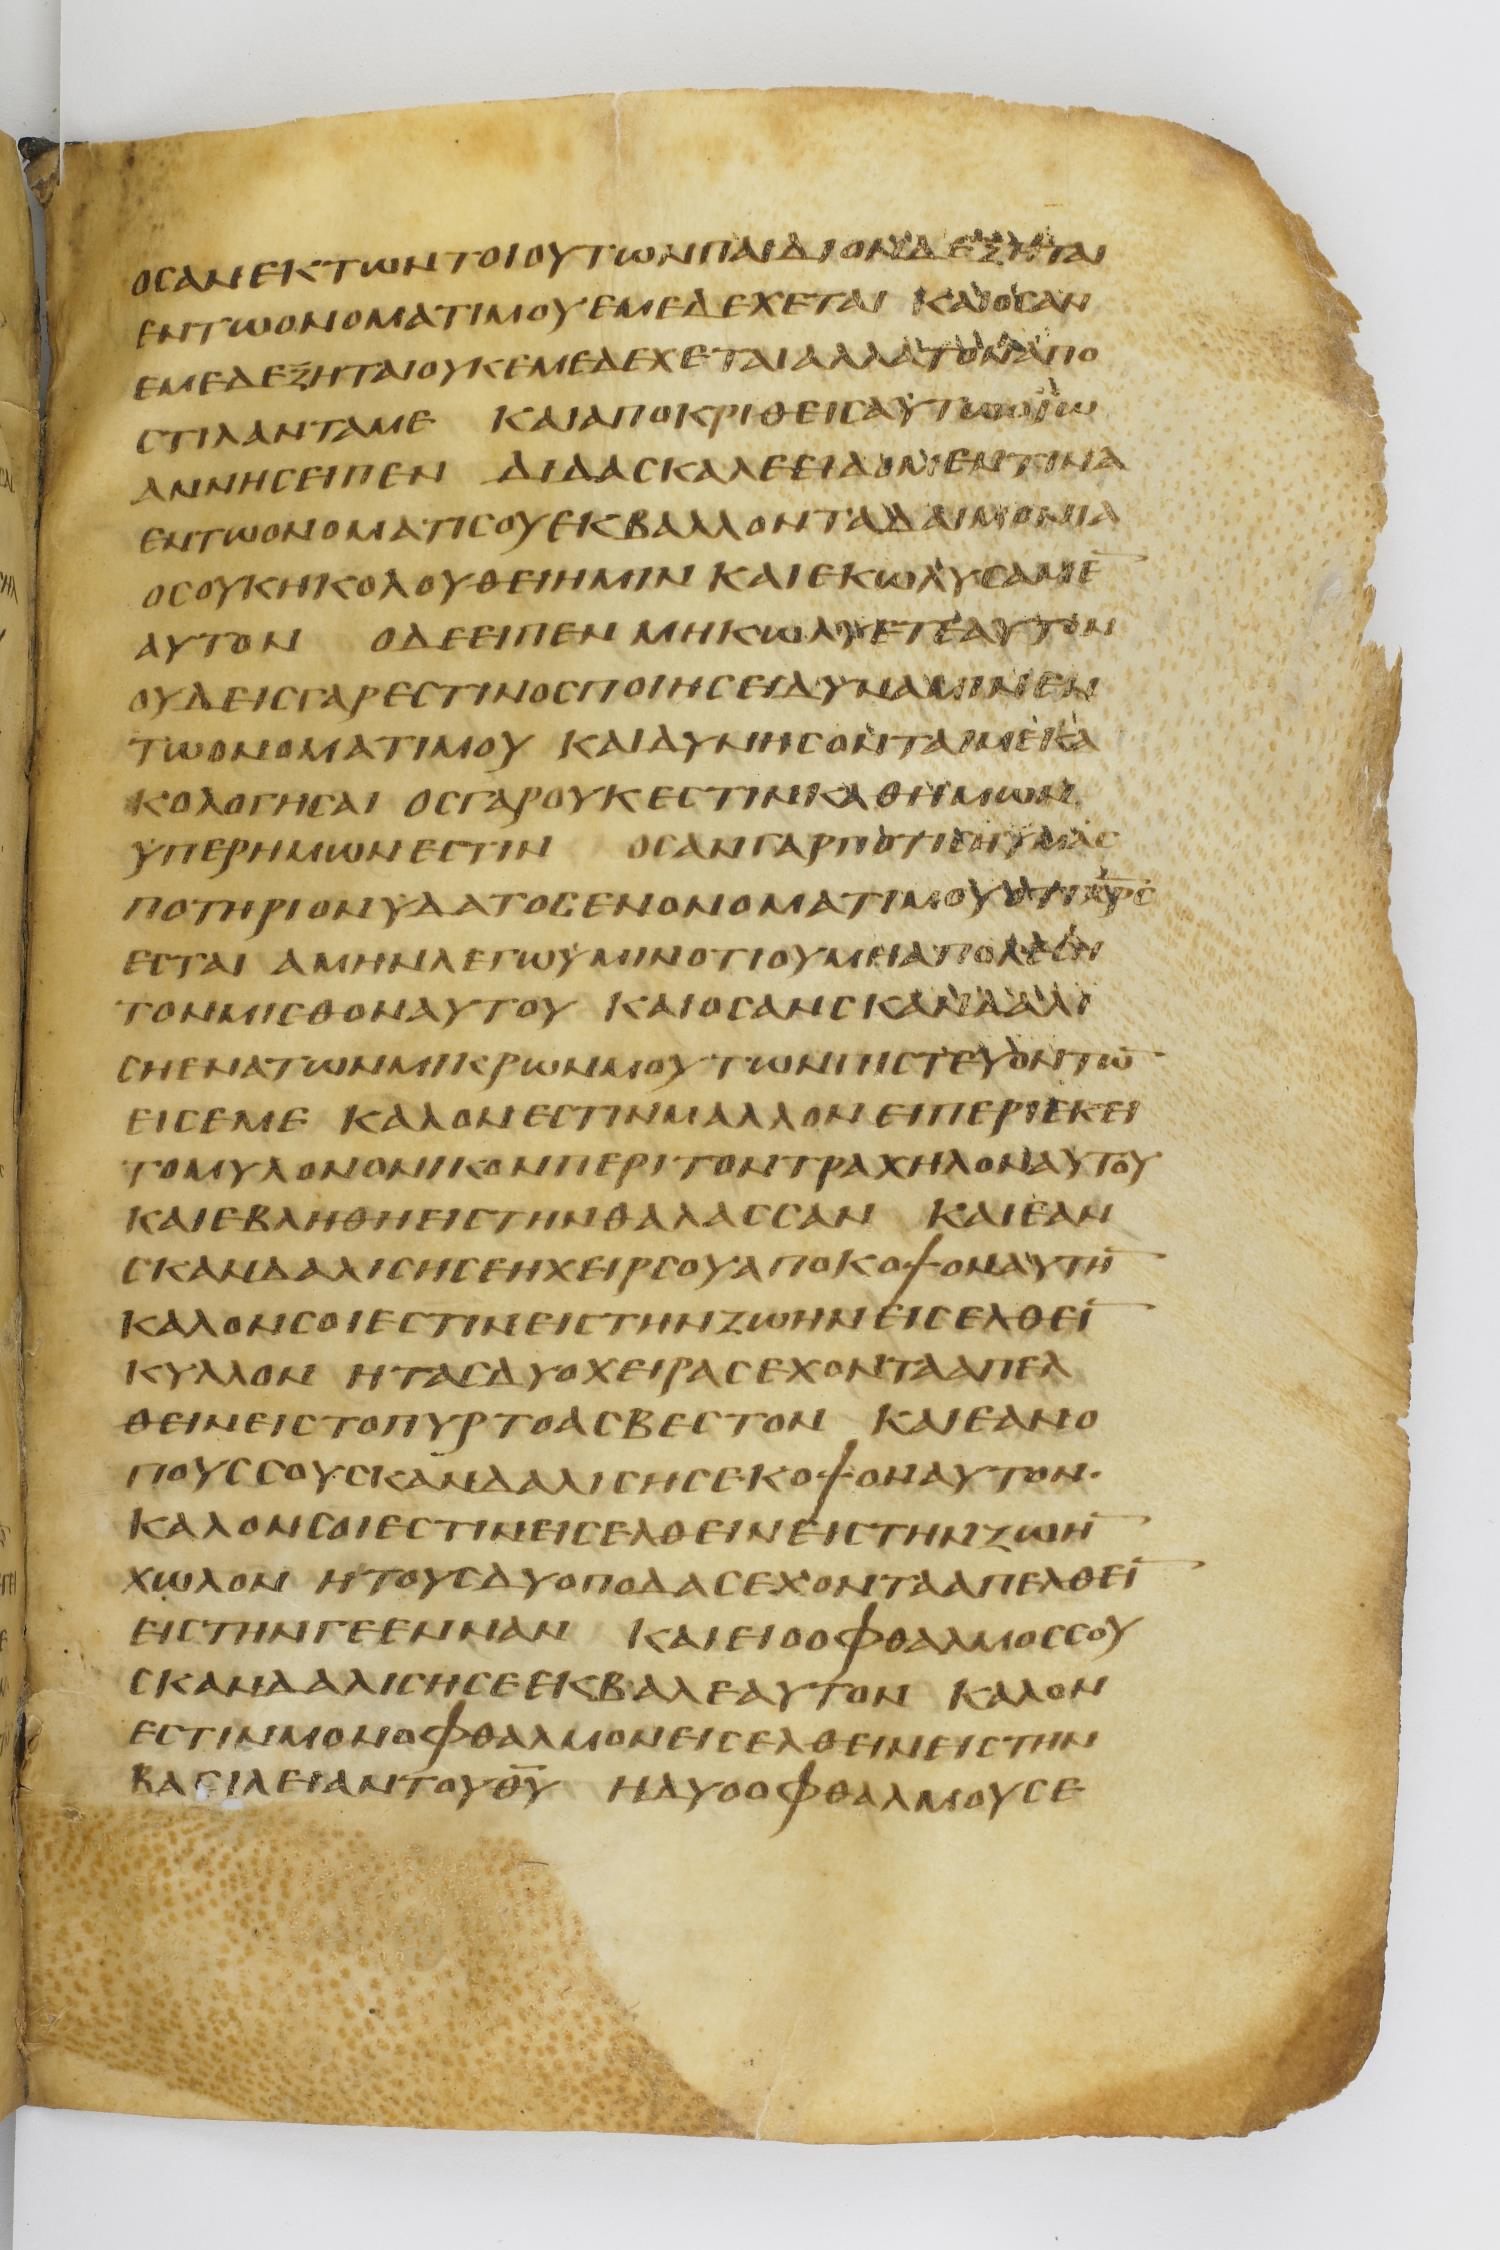 ΟϹΑΝΕΚΤΩΝΤΟΙΟΥΤΩΝΠΑΙΔΙΟΝΔΕΞΗΤΑΙ
ΕΝΤΩΟΝΟΜΑΤΙΜΟΥΕΜΕΔΕΧΕΤΑΙ ΚΑΙΟϹΑΝ
ΕΜΕΔΕΞΗΤΑΙΟΥΚΕΜΕΔΕΧΕΤΑΙΑΛΛΑΤΟΝΑΠΟ
ϹΤΙΛΑΝΤΑΜΕ ΚΑΙΑΠΟΚΡΙΘΕΙϹΑΥΤΩΟΙΩ
ΑΝΝΗϹΕΙΠΕΝ ΔΙΔΑϹΚΑΛΕΕΙΔΟΜΕΝΤΙΝΑ
ΕΝΤΩΟΝΟΜΑΤΙϹΟΥΕΚΒΑΛΛΟΝΤΑΔΑΙΜΟΝΙΑ
ΟϹΟΥΚΗΚΟΛΟΥΘΕΙΗΜΙΝ ΚΑΙΕΚΩΛΥϹΑΜΕ̅
ΑΥΤΟΝ ΟΔΕΕΙΠΕΝ ΜΗΚΩΛΥΕΤΕΑΥΤΟΝ
ΟΥΔΕΙϹΓΑΡΕϹΤΙΝΟϹΠΟΙΗϹΕΙΔΥΝΑΜΙΝΕΝ
ΤΩΟΝΟΜΑΤΙΜΟΥ ΚΑΙΔΥΝΗϹΟΝΤΑΙΜΕΚΑ
ΚΟΛΟΓΗϹΑΙ ΟϹΓΑΡΟΥΚΕϹΤΙΝΚΑΘΗΜΩΝ
ΥΠΕΡΗΜΩΝΕϹΤΙΝ ΟϹΑΝΓΑΡΠΟΤΙϹΗΥΜΑϹ
ΠΟΤΗΡΙΟΝΥΔΑΤΟϹΕΝΟΝΟΜΑΤΙΜΟΥΟΤΙΧ̅Ρ̅Ϲ̅
ΕϹΤΑΙ ΑΜΗΝΛΕΓΩΥΜΙΝΟΤΙΟΥΜΗΑΠΟΛΕϹΗ
ΤΟΝΜΙϹΘΟΝΑΥΤΟΥ ΚΑΙΟϹΑΝϹΚΑΝΔΑΛΙ
ϹΗΕΝΑΤΩΝΜΙΚΡΩΝΜΟΥΤΩΝΠΙϹΤΕΥΟΝΤΩ̅
ΕΙϹΕΜΕ ΚΑΛΟΝΕϹΤΙΝΜΑΛΛΟΝΕΙΠΕΡΙΕΚΕΙ
ΤΟΜΥΛΟΝΟΝΙΚΟΝΠΕΡΙΤΟΝΤΡΑΧΗΛΟΝΑΥΤΟΥ
ΚΑΙΕΒΛΗΘΗΕΙϹΤΗΝΘΑΛΑϹϹΑΝ ΚΑΙΕΑΝ
ϹΚΑΝΔΑΛΙϹΗϹΕΗΧΕΙΡϹΟΥΑΠΟΚΟΨΟΝΑΥΤΗ̅
ΚΑΛΟΝϹΟΙΕϹΤΙΝΕΙϹΤΗΝΖΩΗΝΕΙϹΕΛΘΕΙ̅
ΚΥΛΛΟΝ ΗΤΑϹΔΥΟΧΕΙΡΑϹΕΧΟΝΤΑΑΠΕΛ
ΘΕΙΝΕΙϹΤΟΠΥΡΤΟΑϹΒΕϹΤΟΝ ΚΑΙΕΑΝΟ
ΠΟΥϹϹΟΥϹΚΑΝΔΑΛΙϹΗϹΕΚΟΨΟΝΑΥΤΟΝ·
ΚΑΛΟΝϹΟΙΕϹΤΙΝΕΙϹΕΛΘΕΙΝΕΙϹΤΗΝΖΩΗ̅
ΧΩΛΟΝ ΗΤΟΥϹΔΥΟΠΟΔΑϹΕΧΟΝΤΑΑΠΕΛΘΕΙ̅
ΕΙϹΤΗΝΓΕΕΝΝΑΝ ΚΑΙΕΙΟΟΦΘΑΛΜΟϹϹΟΥ
ϹΚΑΝΔΑΛΙϹΗϹΕΕΚΒΑΛΕΑΥΤΟΝ ΚΑΛΟΝ
ΕϹΤΙΝΜΟΝΟΦΘΑΛΜΟΝΕΙϹΕΛΘΕΙΝΕΙϹΤΗΝ
ΒΑϹΙΛΕΙΑΝΤΟΥΘ̅Υ̅ ΗΔΥΟΟΦΘΑΛΜΟΥϹΕ